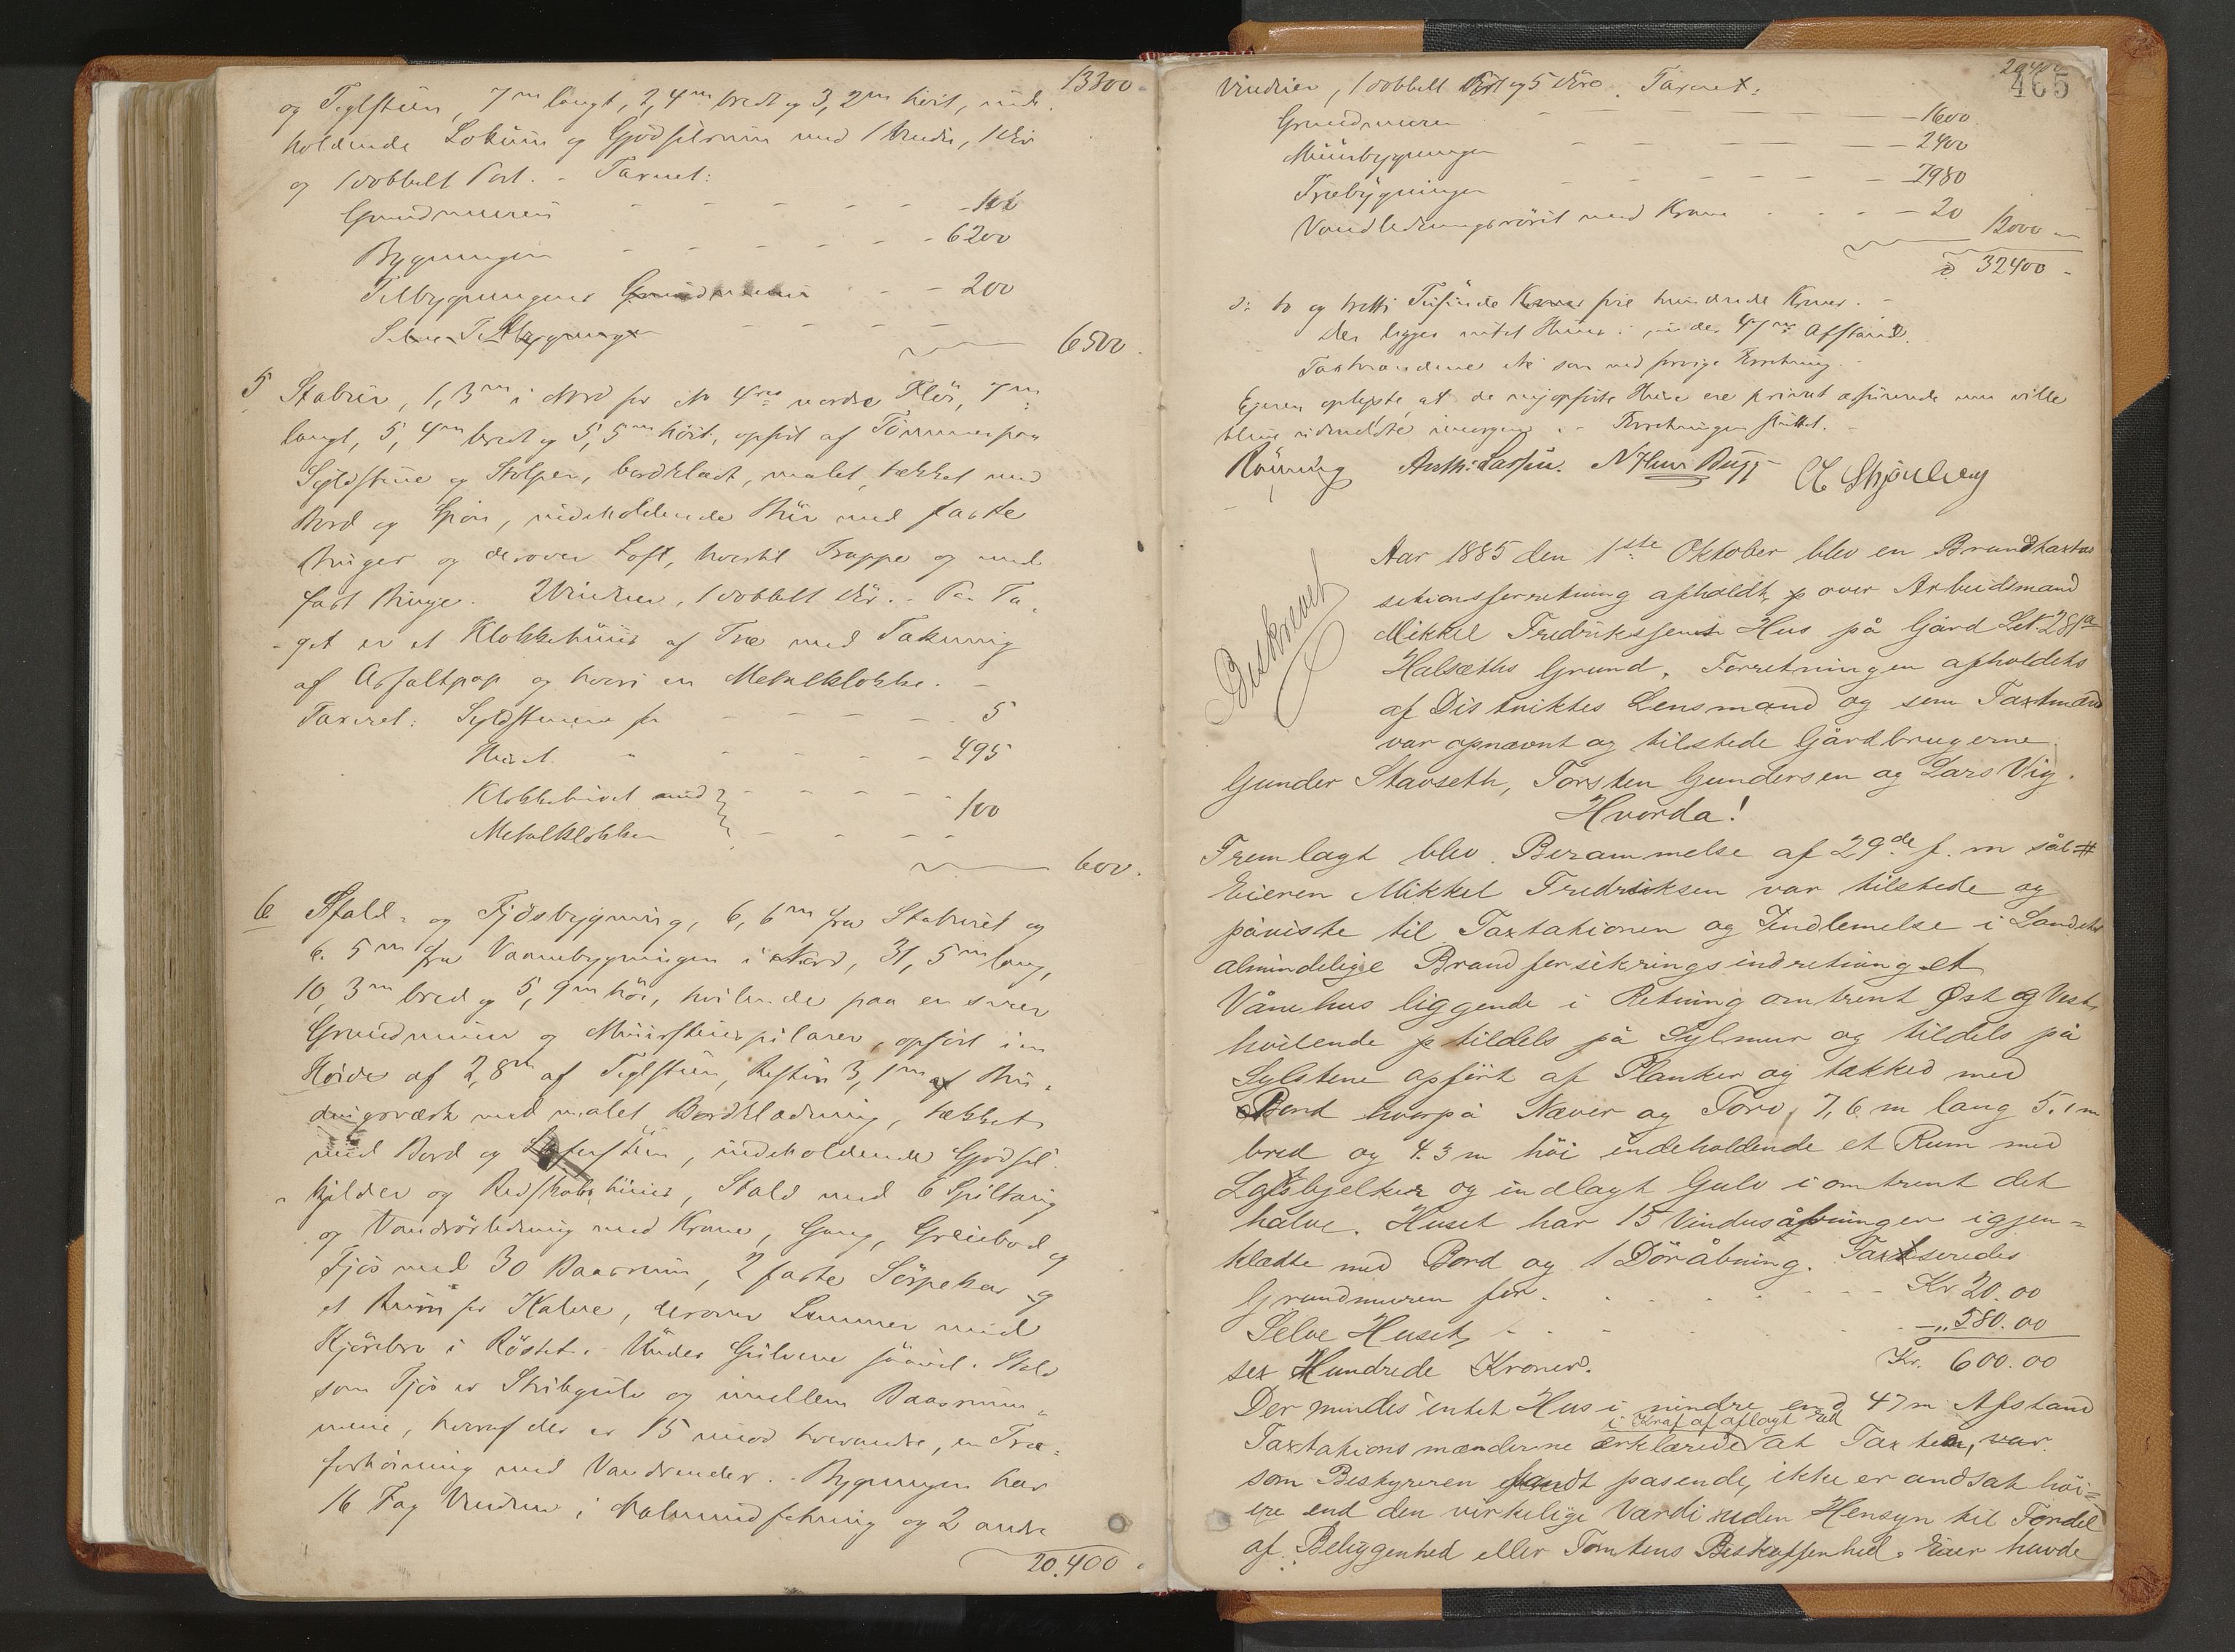 13300.
og Teglsteen, 7m langt, 2,4m bredt og 3,2m høit, inde-
holdende Lokum og Gjødselrum med 1 Vindu, 1 Dør
og 1 dobbelt Port. - Taxeret:
Grundmuren - - - - - 100
Bygningen - - - - - 6200
Tilbygningens Grundmur - - 200
Selve Tilbygningen - - - -
6500.
5 Stabur, 1,3m i Nord for No 4res nordre Fløi, 7m
langt, 5,4m bredt og 5,5m høit, opført af Tømmer paa
Syldstene og Stolper, bordklædt, malet, tækket med
Bord og Spon, indeholdende Bur med faste
Binger og derover Loft, hvortil Trappe og med
fast Binge. 2 Vinduer, 1 dobbelt Dør. - Paa Ta-
get er et Klokkehuus af Træ med Takning
af Asfaltpap og hvori en Metalklokke. -
Taxeret: Syldstenene for - - - - 5
Huset " - - - - 495
Klokkehuset med - - - -
Metalklokken - - - - 100
600.
6 Stald- og Fjøsbygning, 6,6m fra Staburet og
6.5m fra Vaanebygningen i Nord, 31,5m lang,
10,3m bred og 5,9m høi, hvilende paa en svær
Grundmuur og Muurstenspilarer, opført i en
Høide af 2,8m af Teglsteen, Resten 3,1m af Bin-
dingsværk med malet Bordklædning, tækket
med Bord og Skifersteen, indeholdende Gjødsel-
kjelder og Redskabshuus, Stald med 6 Spiltaug
og Vandrørledning med Krane, Gang, Greiebod og
Fjøs med 30 Baasrum, 2 faste Sørpekar og
et Rum for Kalve, derover Lemmer med
Kjørebro i Røstet. Under Gulvene saavel i Stald
som Fjøs er Stubgulv og imellem Baasrum-
mene, hvoraf der er 15 imod hverandre, en Træ-
forhøining med Vandrender. - Bygningen har
16 Fag Vinduer i Malmindfatning og 2 andre
20.400.
20400
465
Vinduer, 1 dobbelt Port og 5 Døre. Taxeret:
Grundmuren - - - - - 1600.
Muurbygningen - - - - - 2400
Træbygningen - - - - - 7980
Vandledningsrøret med Krane - - - 20
12000 -
32400 -
o: to og tretti Tusinde Kroner fire hundrede Kroner. -
Der ligger intet Huus i under 47m Afstand.
Taxtmændene etc som ved forrige Forretning. -
Egeren oplyste, at de nyopførte Huse ere privat assurerede men ville
blive udmeldte imorgen. - Forretningen sluttet. -
Rönning Anth: Larsen. N Hans Bugge C E Stjernberg
Beskrevet
Aar 1885 den 1ste Oktober blev en Brandtaxta
sctionsforretning afholdt p over Arbeidsmand
Mikkel Fredriksens Hus på Gård Let. 281a
Halsæths Grund. Forretningen afholdets
af Distriktes Lensmand og som Taxtmænd
var opnævnt og tilstede Gårdbrugerne
Gunder Stavseth, Torsten Gundersen og Lars Vig.
Hvorda!
Fremlagt blev Berammelse af 29de f. m sål #
Eieren Mikkel Fredriksen var tilstede og
påviste til Taxtationen og Indlemelse i Landets
almindelige Brandforsikringsindretning et
Vånehus liggende i Retning omtrent Øst og Vest,
hvilende p tildels på Sylmur og tildels på
Sylstene opført af Planker og tækked med
Bord hvorpå Næver og Torv, 7,6 m lang 5.1 m
bred og 4.3 m høi indeholdende et Rum med
Loftsbjelker og indlagt Gulv i omtrent det
halve. Huset har 15 Vindusåbninger igjen-
klædte med Bord og 1 Døråbning. Taxtseredes
Grundmuren for. . . . . . - - - Kr 20.00
Selve Huset - . . . . . - „ 580.00
sex Hundrede Kroner. Kr. 600.00
Der mindes intet Hus i mindre end 47 m Afstand
i Kraf af aflagt Ed
Taxtationsmænderne erklærede at Taxten, var
som Beskyreren fandt pasende, ikke er andsat høi-
ere end den virkelige Værdi uden Hensyn til Fordel
af Beliggenhed eller Tomtens Beskaffenhed. Eier havde